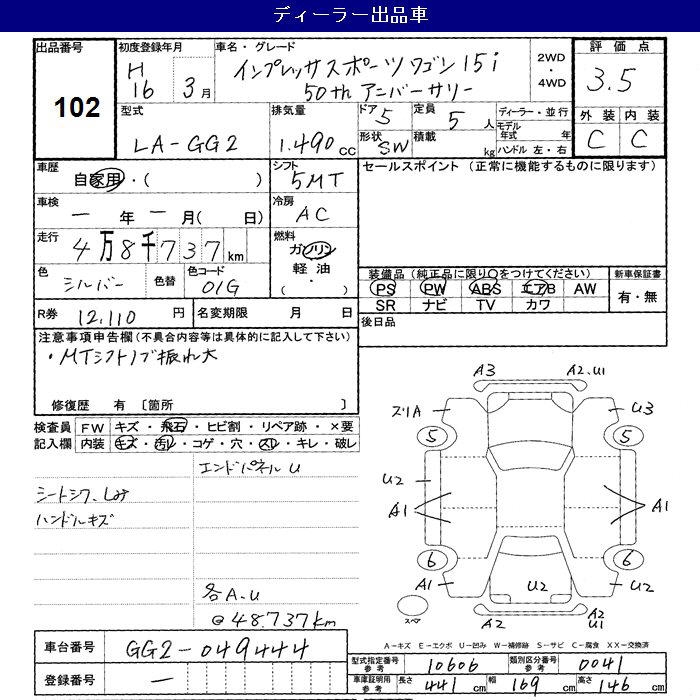 ディーラー出品車
出品番号 初度登録年月 車名・グレード 2WD・4WD 評価点
102
H16 3月
インプレッサスポーツワゴン 15i
50th アニバーサリー
3.5
型式 排気量 ドア 定員 ディーラー・並行 外装 内装
LA-GG2 1.490cc 5 5人 モデル年式 年 C C
形状 SW 積載 kg ハンドル 左・右
車歴 自家用・( ) シフト 5MT セールスポイント (正常に機能するものに限ります)
車検 ー年ー月( 日) 冷房 AC
走行 4万8千737km 燃料 ガソリン
軽油
・( )
色 シルバー 色替 色コード 01G
装備品(純正品に限り○をつけてください) 新車保証書
PS PW ABS エアB AW 有・無
SR ナビ TV カワ
R券 12,110円 名変期限 月 日 後日品
注意事項申告欄(不具合内容等は具体的に記入して下さい)
・MTシフトノブ振れ大
修復歴 有 〔箇所 〕
検査員 FW キズ・飛石・ヒビ割・リペア跡・×要
記入欄 内装 キズ・汚レ・コゲ・穴・スレ・キレ・破レ
エンドパネルU
シートシワ、しみ
ハンドルキズ
各A.U
@48.737km
A3 A2.U1
ズリA U3
5 5
U2
A1 A1
6 6
A1 U2 U2
A2 A2 U1
スペア
A-キズ E-エクボ U-凹み W-補修跡 S-サビ C-腐食 XX-交換済
車台番号 GG2-049444
登録番号 ー
型式指定番号 参考 10606 類別区分番号 参考 0041
車庫証明用 参考 長さ 441cm 幅 169cm 高さ 146cm